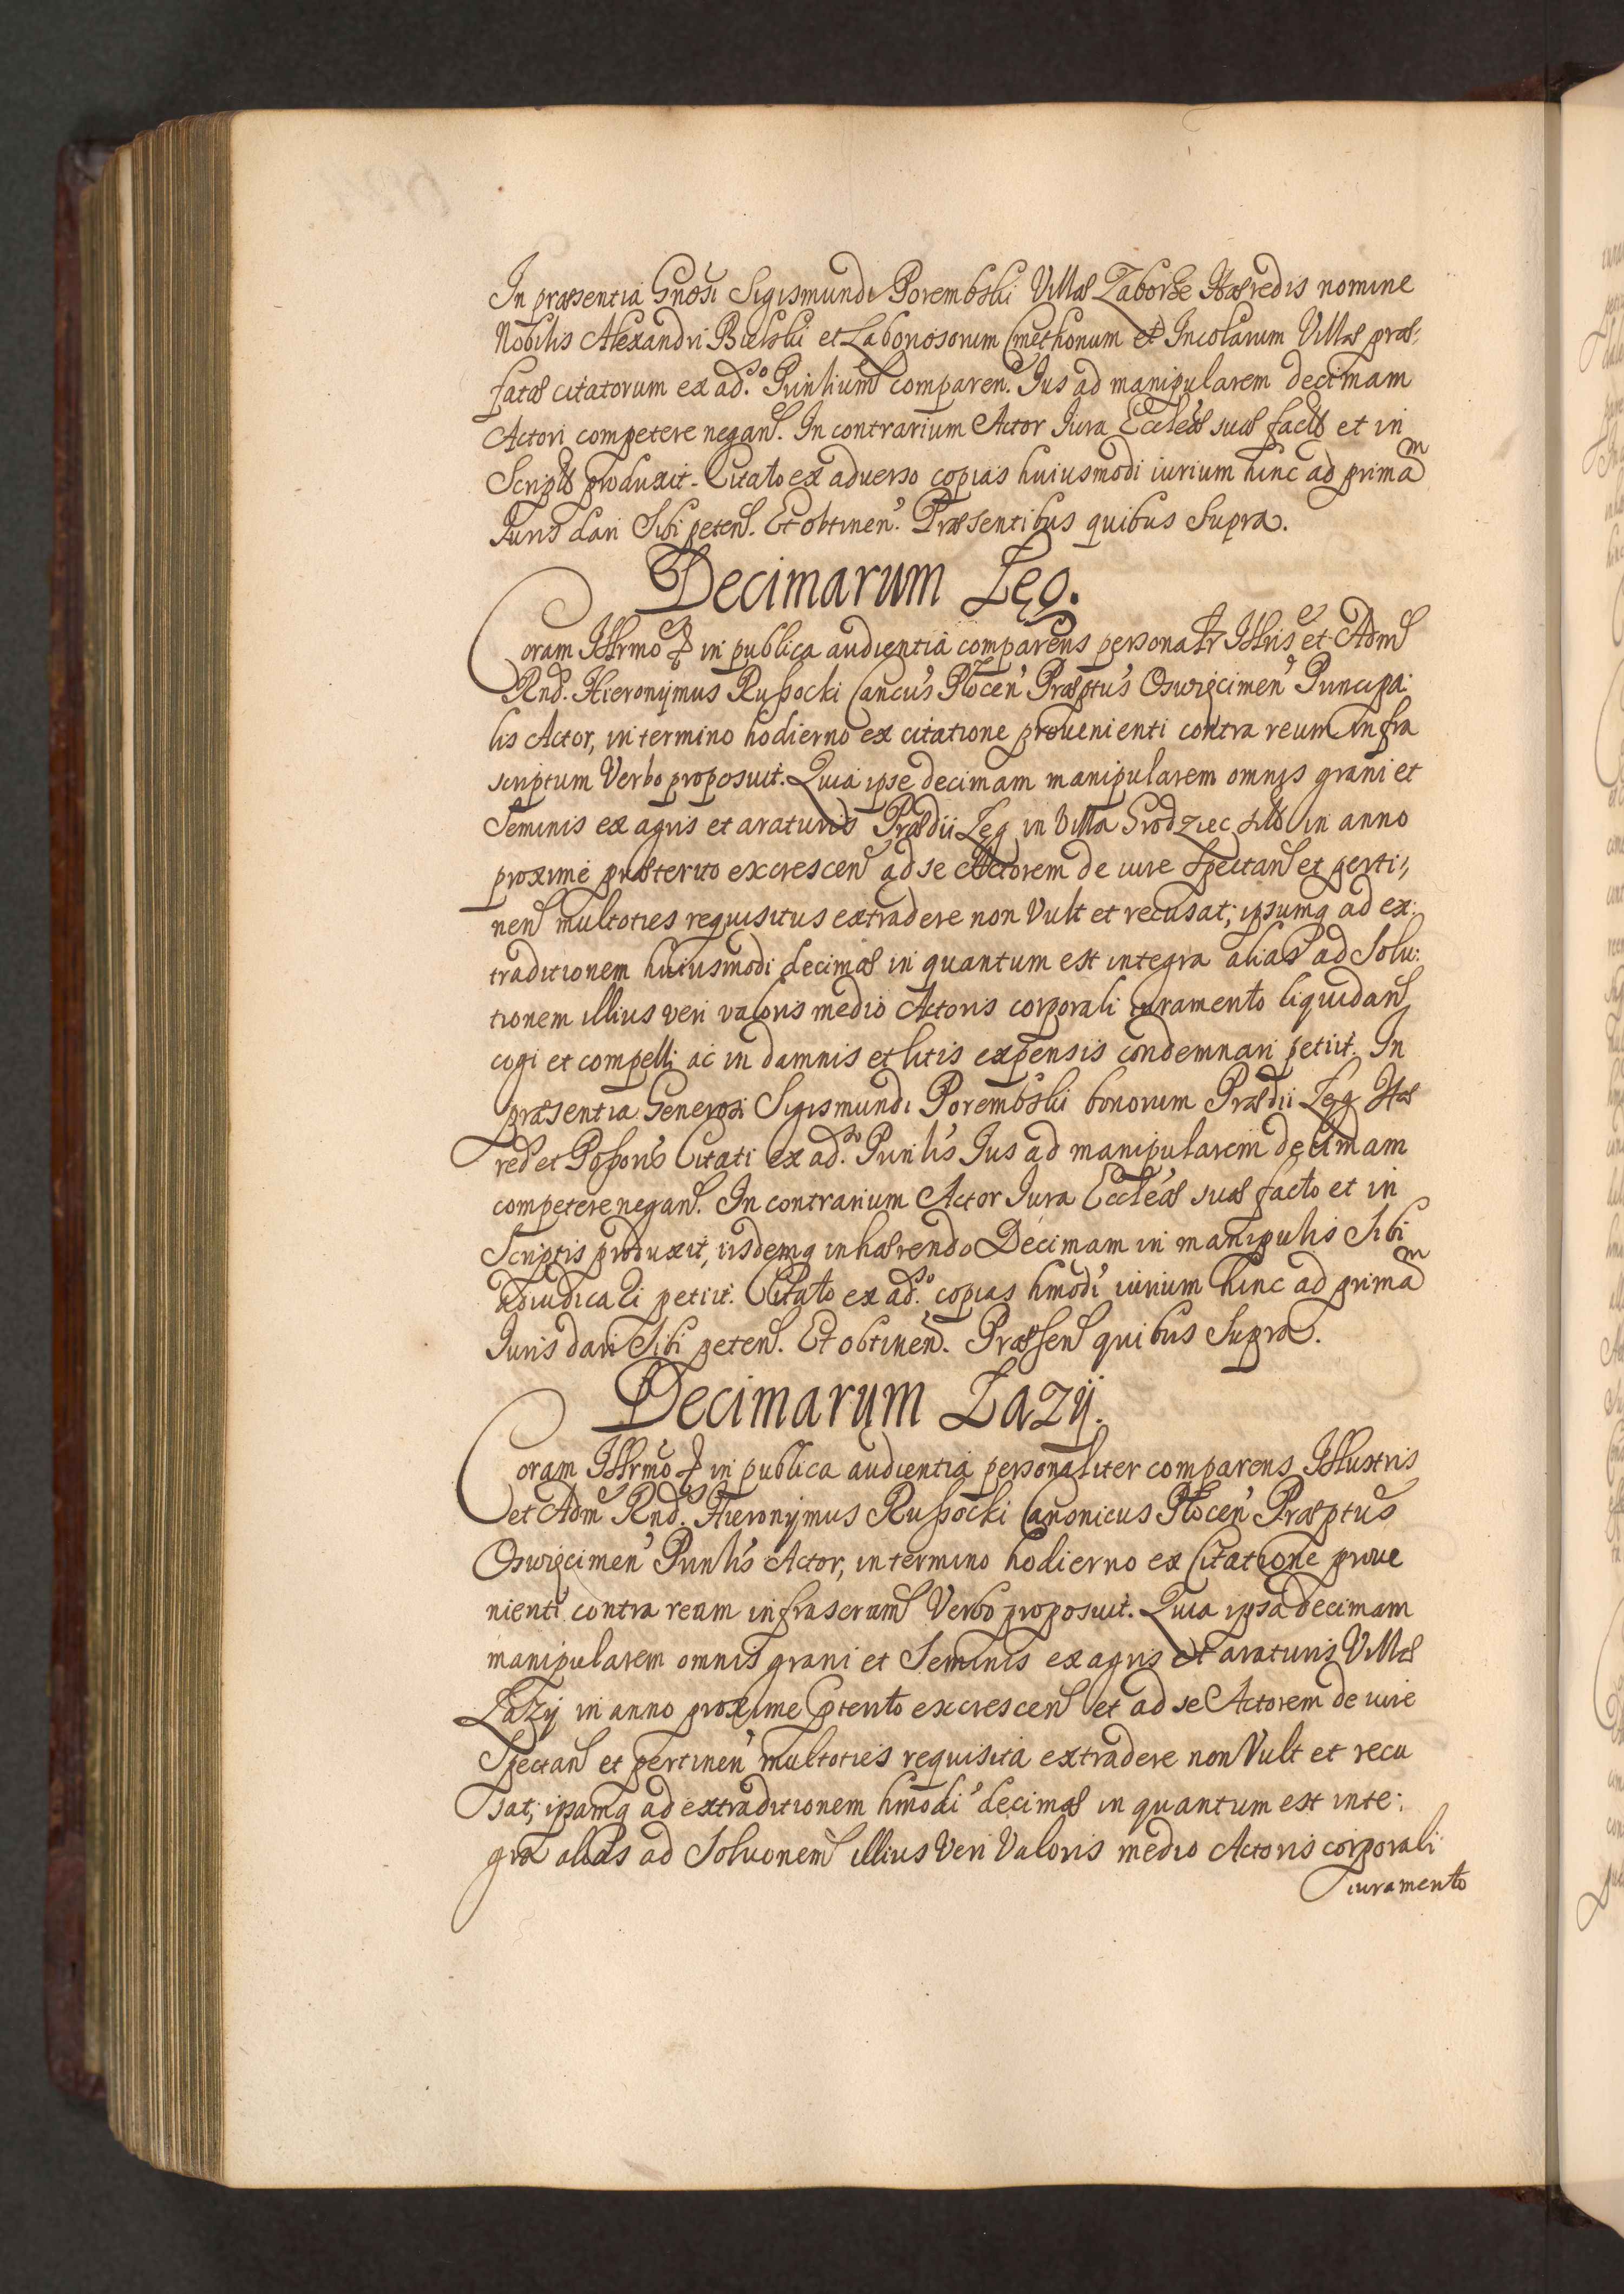 In præsentia Gnosi Sigismundi Porembski Villæ Zaborze Hæredis nomine
Nobilis Alexandri Bielski et Laboriosorum Cmethonum et Incolarum Villæ præ-
fatæ citatorum ex ad.so Prinlium comparen. Jus ad manipularem decimam
Actori competere negan. In contrarium Actor Jura Eccleæ suæ facto et in
Scripto produxit. Citato ex aduerso copias huiusmodi iurium hinc ad primam
Juris dari Sibi peten. Et obtinen. Præsentibus quibus Supra.
Decimarum Łęg.
Coram Illrmo in publica audientia comparens personalr Illris et Adm
Rnd. Hieronijmus Rußocki Cancus Plocen Præptus Oswięcimen Principa:
lis Actor, in termino hodierno ex citatione prouenienti contra reum infra
scriptum Verbo proposuit. Quia ipse decimam manipularem omnis grani et
Seminis ex agris et araturis Prædii Łęg in Villa Grodziec in anno
proxime præterito excrescen ad se Actorem de iure Spectan et perti:
nen multoties requisitus extradere non Vult et recusat; ipsumq ad ex:
traditionem huiusmodi decimæ in quantum est integra alias ad Solu:
tionem illius veri valoris medio Actoris corporali iuramento liquidan
cogi et compelli ac in damnis et litis expensis condemnari petiit. In
præsentia Generosi Sigismundi Porembski bonorum Prædii Łęg Hæ
red et Poßoris Citati ex ad.so Prinlis Jus ad manipularem decimam
competere negan. In contrarium Actor Jura Eccleæ suæ facto et in
Scriptis produxit, iisdemq inhærendo Decimam in manipulis Sibi
adiudicari petiit. Citato ex ad.so copias hmodi iurium hinc ad primam
Juris dari Sibi peten. Et obtinen. Præsen quibus Supra.
Decimarum Łazÿ.
Coram Illrmo in publica audientia personaliter comparens Illustris
et Adm Rnd. Hieronijmus Rußocki Canonicus Plocen Præptus
Oswięcimen Prinlis Actor, in termino hodierno ex Citatione proue
nienti contra ream infrascram Verbo proposuit. Quia ipsa decimam
manipularem omnis grani et Seminis ex agris et araturis Villæ
Łazÿ in anno proxime pterito excrescen et ad se Actorem de iure
Spectan et pertinen multoties requisita extradere non Vult et recu
sat; ipsamq ad extraditionem hmodi decimæ in quantum est inte:
gra alias ad Soluonem illius Veri Valoris medio Actoris corporali
iuramento